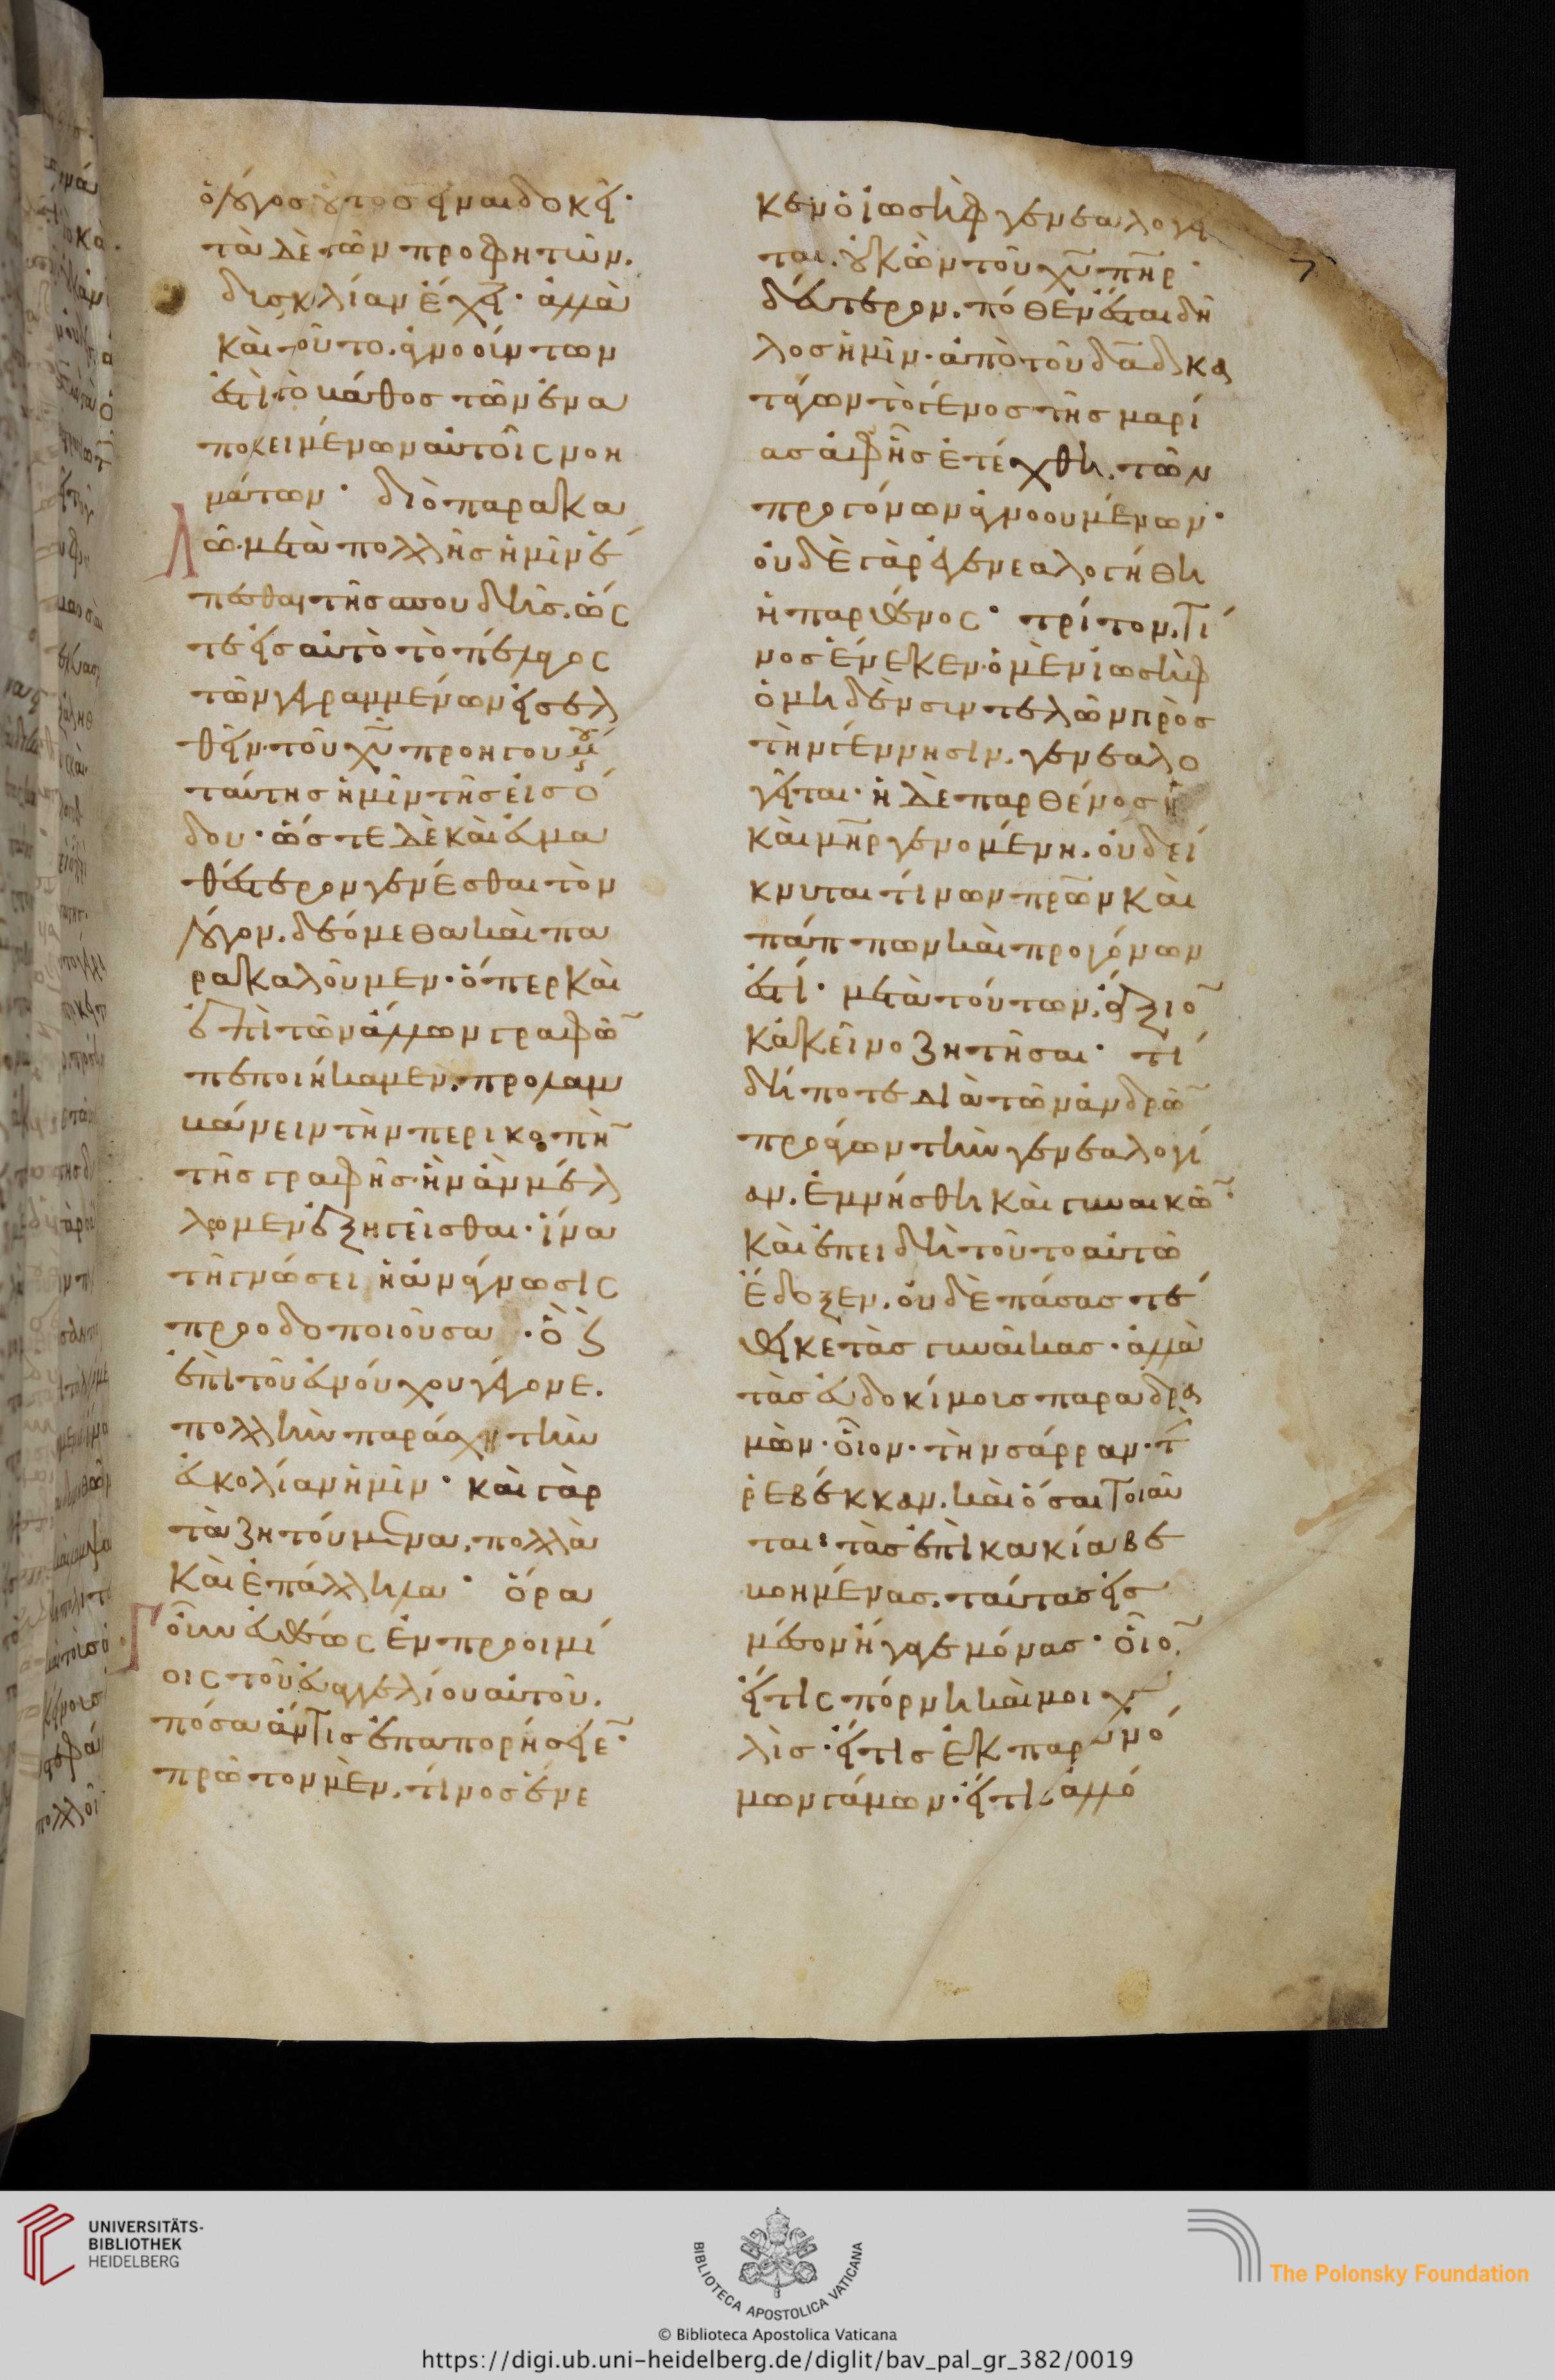 ὁ λόγος οὗτος εἶναι δοκεῖ·
τὰ δὲ τῶν προφητῶν.
δυσκολίαν ἔχει· ἀλλὰ
καὶ τοῦτο. ἀγνοούντων
ἐστὶ τὸ βάθος τῶν ἐνα
ποκειμένων αὐτοῖς νοη
μάτων· διὸ παρακα
λῶ. μετὰ πολλῆς ἡμῖν ἕ
πεσθαι τῆς σπουδῆς. ὥς
τε εἰς αὐτὸ τὸ πέλαγος
τῶν γεγραμμένων εἰσελ
θεῖν. τοῦ χ̅υ̅ προηγουμ
ταύτης ἡμῖν τῆς εἰσό
δου· ὥστε δὲ καὶ εὐμα
θέστερον γενέσθαι τὸν
λόγον. δεόμεθα καὶ πα
ρακαλοῦμεν· ὅπερ καὶ
ἐπὶ τῶν ἄλλων γραφῶ̅
πεποιήκαμεν. προλαμ
βάνειν τὴν περικοπὴ̅
τῆς γραφῆς. ἣν ἂν μέλ
λωμεν ἐξηγεῖσθαι. ἵνα
τῆ γνώσει ἡ ἀνάγνωσις
προοδοποιοῦσα· ὃ ϗ
ἐπὶ τοῦ εὐνούχου γέγονε.
πολλὴν παράσχη τὴν
εὐκολίαν ἡμῖν· καὶ γὰρ
τὰ ζητούμενα. πολλὰ
καὶ ἐπάλληλα· ὅρα
γοῦν εὐθέως ἐν προοιμί
οις τοῦ εὐαγγελίου αὐτοῦ.
πόσα ἄν τις ἐπαπορήσειε̅·
πρῶτον μὲν. τίνος ἕνε
κεν ὁ ἰωσὴφ γενεαλογεῖ
ται. οὐκ ὢν τοῦ χ̅υ̅ π̅η̅ρ̅·
δεύτερον. πόθεν ἔσται δῆ
λος ἡμῖν. ἀπὸ τοῦ δ̅α̅δ̅ κα
τάγων τὸ γένος τῆς μαρί
ας ἀφ' ἧς ἐτέχθη. τῶν
προγόνων ἀγνοουμένων·
οὐδὲ γὰρ ἐγενεαλογήθη
ἡ παρθένος· τρίτον. τί
νος ἕνεκεν. ὁ μὲν ἰωσὴφ
ὁ μηδὲν συντελῶν πρὸς
τὴν γέννησιν. γενεαλο
γεῖται· ἡ δὲ παρθένος ἡ
καὶ μ̅η̅ρ̅ γενομένη. οὐ δεί
κνυται τίνων π̅ρ̅ω̅ν̅ καὶ
πάππων καὶ προγόνων
ἐστί· μετὰ τούτων. ἄξιο̅
κἀκεῖνο ζητῆσαι· τί
δήποτε διὰ τῶν ἀνδρῶ̅
προάγων τὴν γενεαλογί
αν. ἐμνήσθη καὶ γυναικῶ̅·
καὶ ἐπειδὴ τοῦτο αὐτῶ
ἔδοξεν. οὐδὲ πάσας τέ
θεικε τὰς γυναῖκας· ἀλλὰ
τὰς εὐδοκίμους παραδρα
μὼν· οἷον· τὴν σάρραν· τ
ῥεβέκκαν. καὶ ὅσαι τοιαῦ
ται· τὰς ἐπὶ κακία βε
βοημένας. ταύτας εἰς
μέσον ἤγαγε μόνας· οἷο̅.
εἴ τις πόρνη καὶ μοιχα
λὶς· εἴ τις ἐκ παρανό
μων γάμων· εἴ τις ἀλλό
7
UNIVERSITÄTS-
BIBLIOTHEK
HEIDELBERG
BIBLIOTECA APOSTOLICA VATICANA
The Polonsky Foundation
© Biblioteca Apostolica Vaticana
https://digi.ub.uni-heidelberg.de/diglit/bav_pal_gr_382/0019